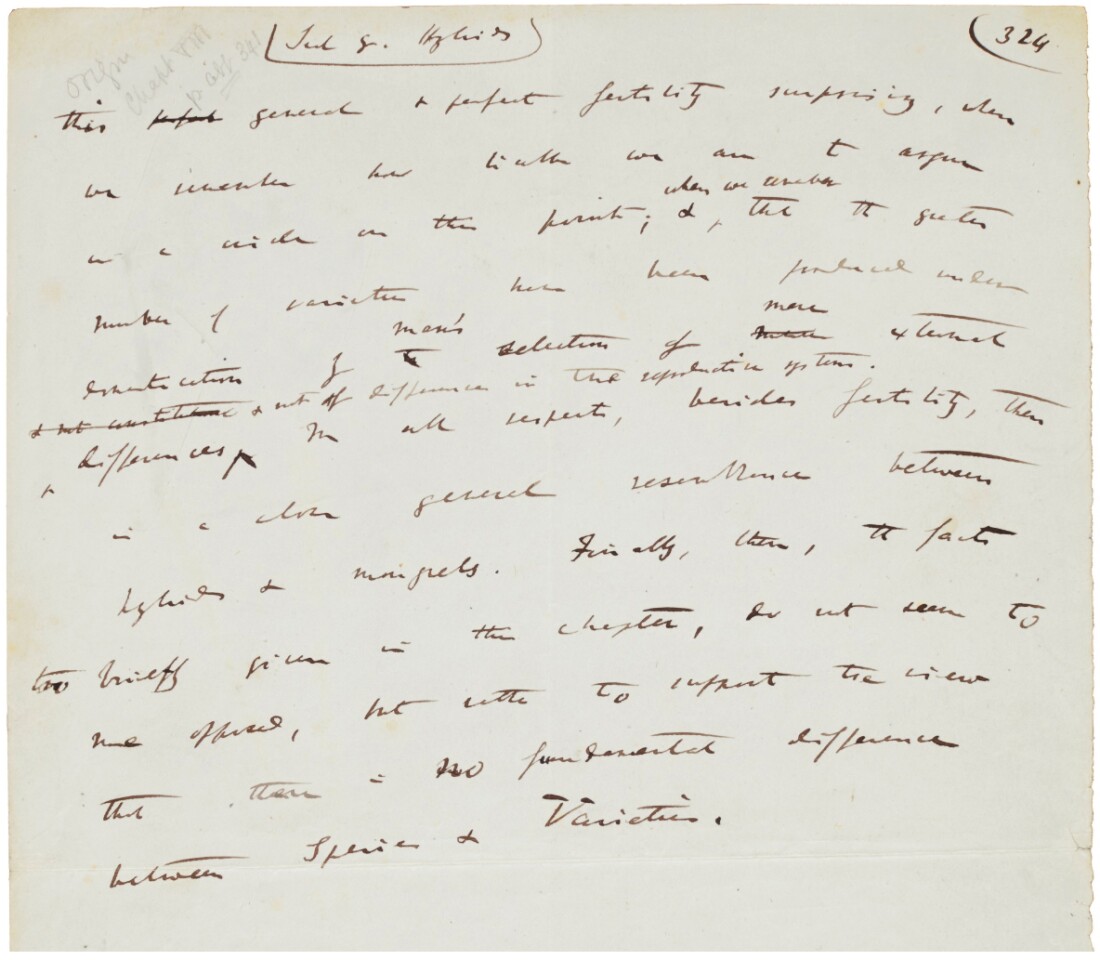 (Sect 9. Hybrids)
324
Origin
Chapt VIII
p 341
this perfect general & perfect fertility surprising, when
we remember how liable we are to argue
in a circle on this point; & when we remember that the greater
number of varieties have been produced under
domestication by man's selection of mere external
& not constitutional & not of differences in the reproductive system.
differences, In all respects, besides fertility, there
is a close general resemblance between
hybrids & mongrels. Finally, then, the facts
too briefly given in this chapter, do not seem to
me opposed, but rather to support the view
that there is no fundamental difference
between Species & Varieties.